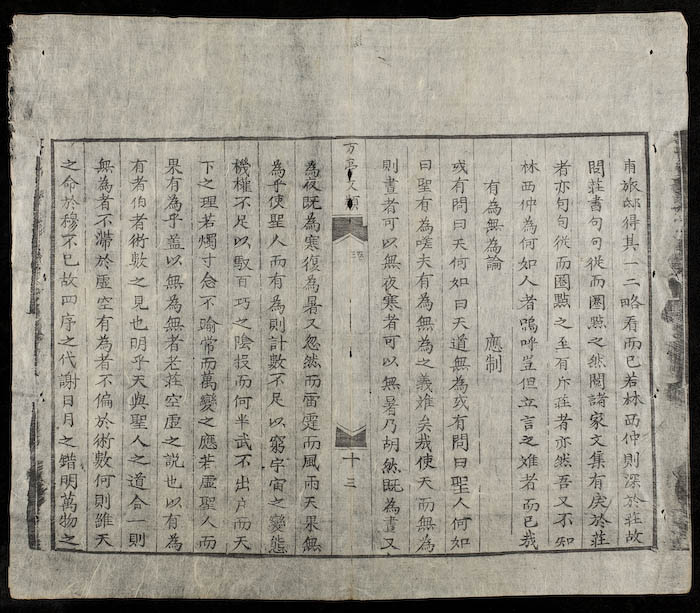 甫旅邸得其一二略看而已若林西仲則深於莊故
閱莊書句句從而圈點之然閱諸家文集有戾於莊
者亦句句從而圈點之至有斥莊者亦然吾又不知
林西仲為何如人者嗚呼豈但立言之难者而已哉
有為無為論 應制
或有問曰天何如曰天道無為或有問曰聖人何如
曰聖有為嗟夫有為無為之義难矣哉使天而無為
則晝者可以無夜寒者可以無暑乃胡然既為晝又
方亭文類 十三
為夜既為寒復為暑又忽然而雷霆而風雨天果無
為乎使聖人而有為則計數不足以窮宇宙之變態
機權不足以馭百巧之陰投而何半武不出户而天
下之理若燭寸念不踰常而萬變之應若虛聖人而
果有為乎盖以無為無者老莊空虛之說也以有為
有者伯者術數之見也明乎天與聖人之道合一則
無為者不滯於虛空有為者不偏於術數何則雖天
之命於穆不已故四序之代謝日月之錯明萬物之